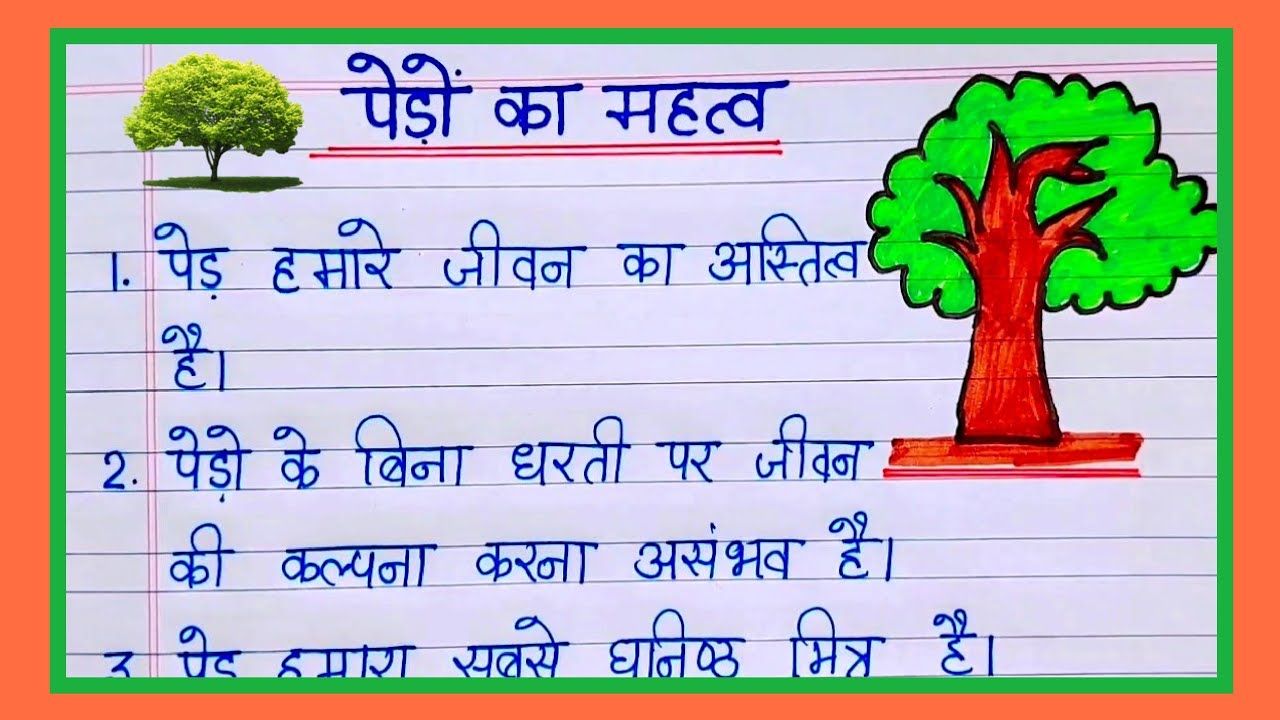 पेड़ों का महत्व
1. पेड़ हमारे जीवन का अस्तित्व
है।
2. पेड़ो के बिना धरती पर जीवन
की कल्पना करना असंभव है।
3 पेड़ हमारा सबसे घनिष्ठ मित्र है।